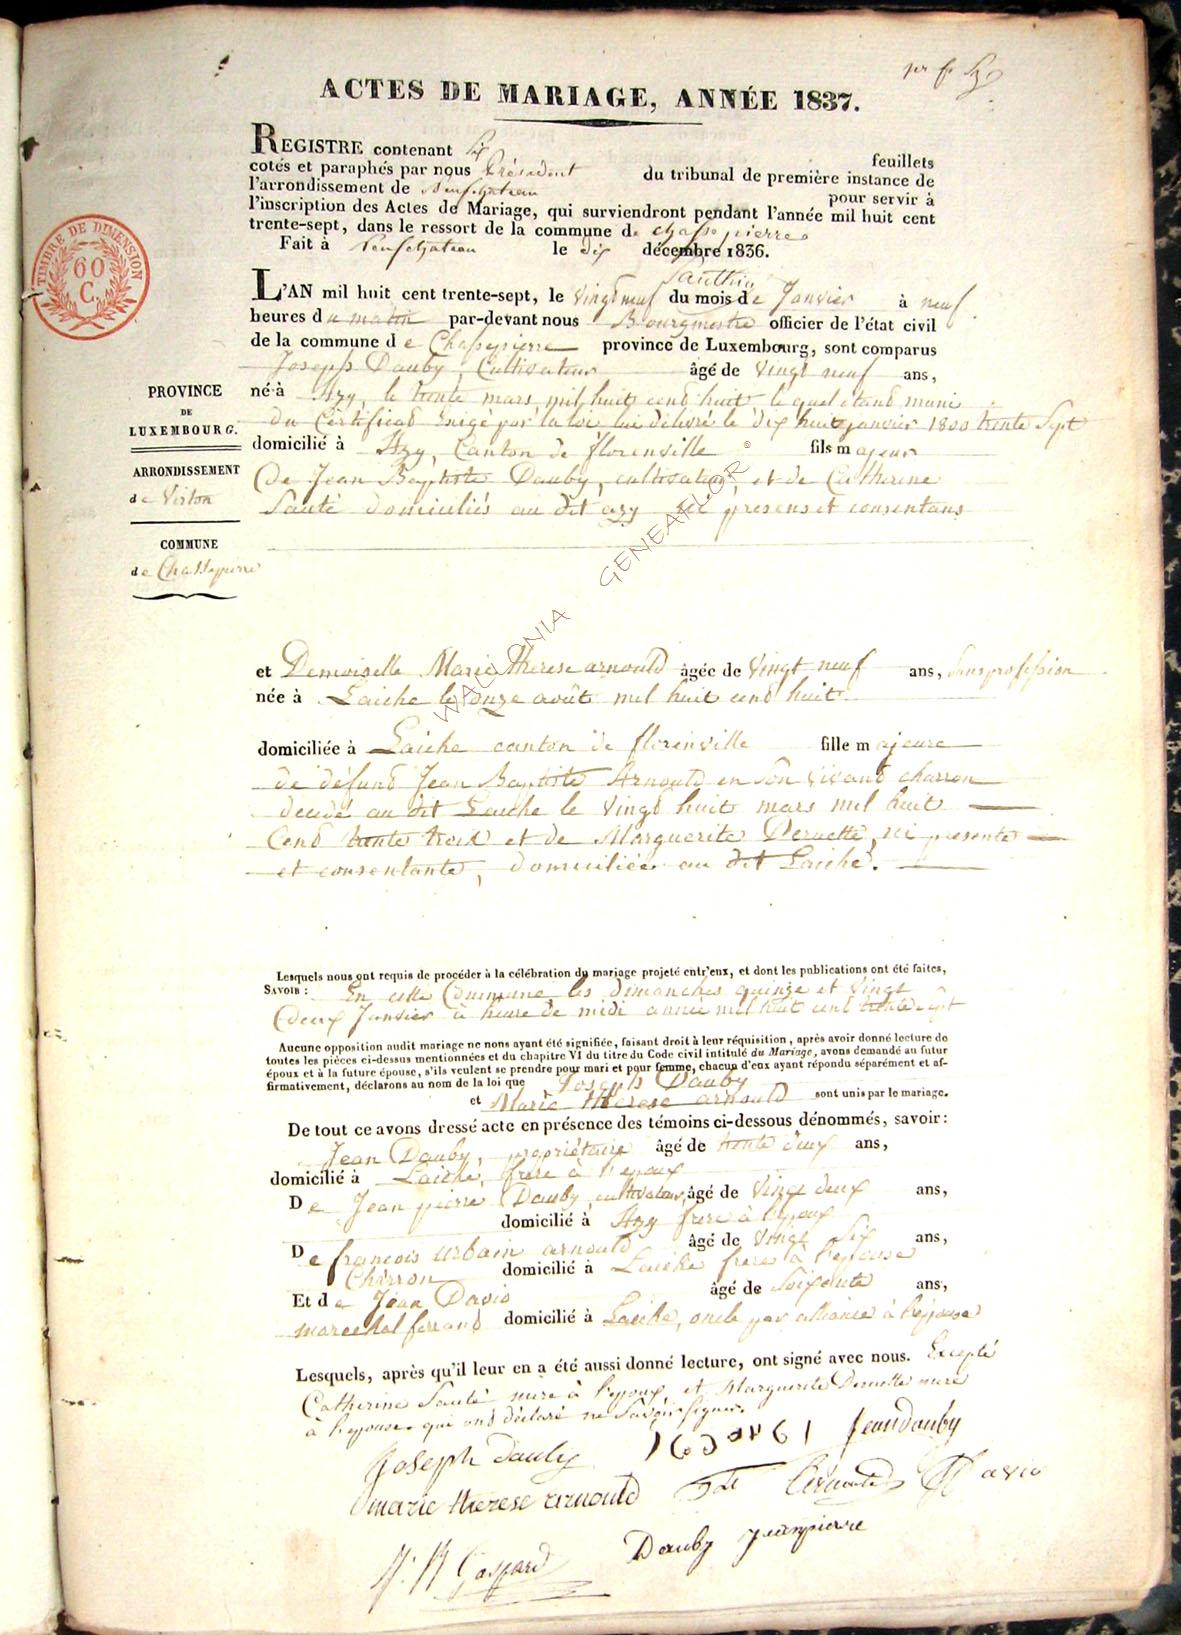 ACTES DE MARIAGE, ANNÉE 1837.
REGISTRE contenant six feuillets
cotés et paraphés par nous Président du tribunal de première instance de
l'arrondissement de Neufchateau pour servir à
l'inscription des Actes de Mariage, qui surviendront pendant l'année mil huit cent
trente-sept, dans le ressort de la commune de chassepierre
Fait à Neufchateau le dix décembre 1836.
TIMBRE DE DIMENSION
60
C.
L'AN mil huit cent trente-sept, le vingt neuf du mois de Janvier à neuf
heures du matin par-devant nous Bourgmestre officier de l'état civil
de la commune de Chassepierre province de Luxembourg, sont comparus
Joseph Dauby, Cultivateur âgé de vingt neuf ans,
né à Azy, le trente mars mil huit cent huit lequel étant muni
du Certificat exigé par la loi lui délivré le dix huit janvier 1800 trente Sept
domicilié à Azy, Canton de florenville fils majeur
De Jean Baptiste Dauby, cultivateur, et de Catherine
Santé domiciliés au dit azy ici presens et consentans
PROVINCE
DE
LUXEMBOURG.
ARRONDISSEMENT
de Virton
COMMUNE
de Chassepierre
et Demoiselle Marie Therese arnould âgée de vingt neuf ans, sans profession
née à Laiche le onze août mil huit cent huit
domiciliée à Laiche canton de florenville fille majeure
de défunt Jean Baptiste Arnould en son vivant charron
decédé au dit Laiche le vingt huit mars mil huit
Cent trente trois et de Marguerite Deruette, ici presente
et consentante, domiciliée au dit Laiche.
Lesquels nous ont requis de procéder à la célébration du mariage projeté entr'eux, et dont les publications ont été faites,
SAVOIR : En cette Commune les dimanches quinze et vingt
deux Janvier à heure de midi année mil huit cent trente sept
Aucune opposition audit mariage ne nous ayant été signifiée, faisant droit à leur réquisition, après avoir donné lecture de
toutes les pièces ci-dessus mentionnées et du chapitre VI du titre du Code civil intitulé du Mariage, avons demandé au futur
époux et à la future épouse, s'ils veulent se prendre pour mari et pour femme, chacun d'eux ayant répondu séparément et af-
firmativement, déclarons au nom de la loi que Joseph Dauby
et Marie Therese arnould sont unis par le mariage.
De tout ce avons dressé acte en présence des témoins ci-dessous dénommés, savoir :
Jean Dauby, propriétaire âgé de trente deux ans,
domicilié à Laiche, frère à l'epoux
De Jean pierre Dauby, cultivateur, âgé de vingt deux ans,
domicilié à Azy frere à l'epoux
De françois urbain arnould âgé de vingt six ans,
Charron domicilié à Laiche frere à l'epouse
Et de Jean David âgé de soixante ans,
marechal ferrand domicilié à Laiche, oncle par alliance à l'epouse
Lesquels, après qu'il leur en a été aussi donné lecture, ont signé avec nous. Excepté
Catherine Santé mere à l'epoux, et Marguerite Deruette mere
à l'epouse qui ont déclaré ne savoir signer.
Joseph dauby Jean Dauby
marie therese arnould
Dauby jeanpierre
Gaspard
WALLONIA GENEAFLOR ©